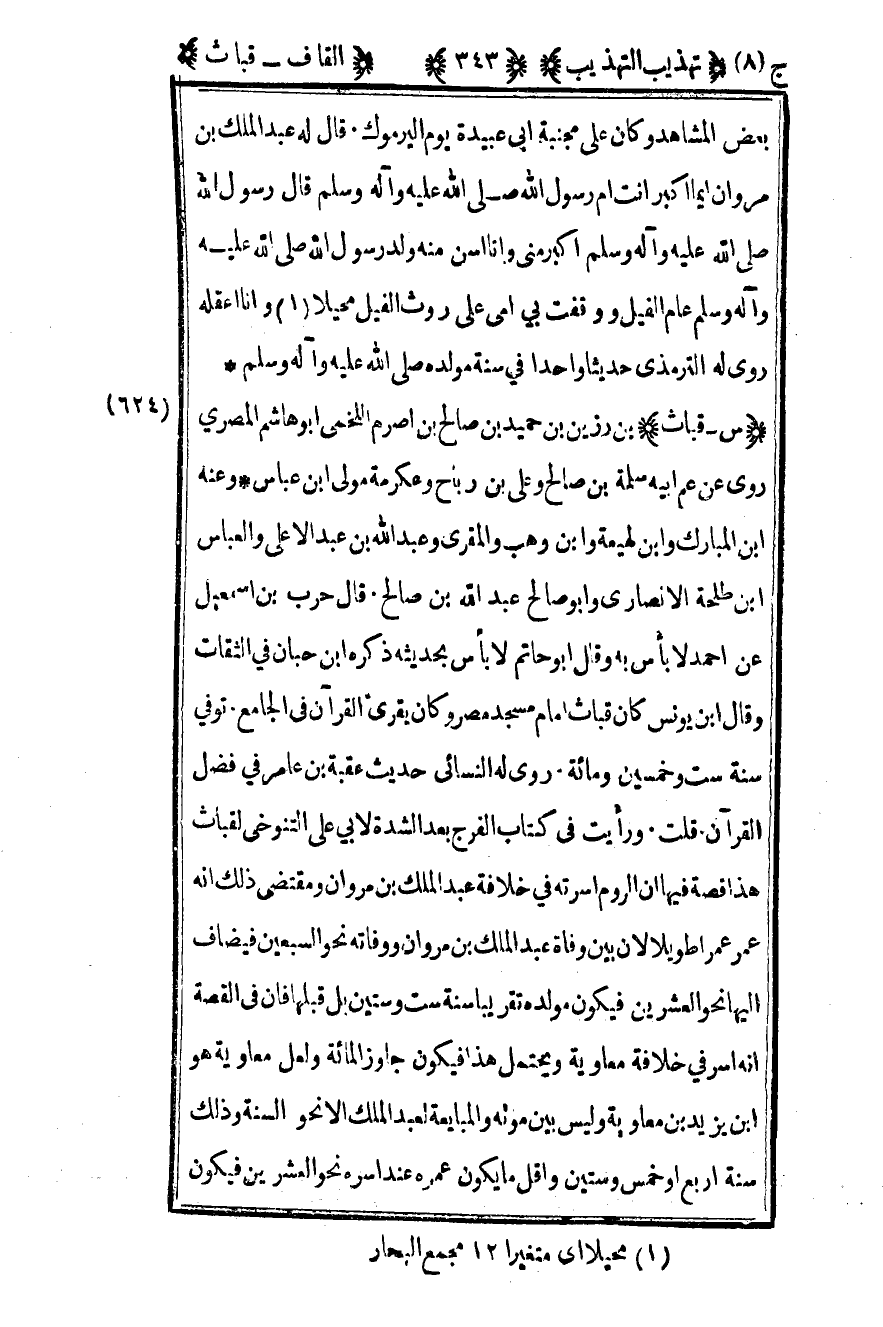 ج (٨) ﴿ تهذيب التهذيب ﴾ ﴿ ٣٤٣ ﴾ ﴿ القاف ـ قباث ﴾
بعض المشاهد وكان على مجنبة ابى عبيدة يوم اليرموك ٠ قال له عبد الملك بن
مروان ايما اكبر انت ام رسول الله صلى الله عليه وآله وسلم قال رسول الله
صلى الله عليه وآله وسلم اكبر منى وانا اسن منه ولد رسول الله صلى الله عليه
وآله وسلم عام الفيل ووقفت بي امى على روث الفيل محيلا (١) وانا اعقله
روى له الترمذى حديثا واحدا في سنة مولده صلى الله عليه وآله وسلم *
(٦٢٤)
﴿ س ـ قباث ﴾ بن رزين بن حميد بن صالح بن اصرم اللخمى ابو هاشم المصري
روى عن عم ابيه سلمة بن صالح وعلى بن رباح وعكرمة مولى ابن عباس * وعنه
ابن المبارك وابن لهيعة وابن وهب والمقرى وعبد الله بن عبد الاعلى والعباس
ابن طلحة الانصارى وابو صالح عبد الله بن صالح ٠ قال حرب بن اسمعيل
عن احمد لا بأس به وقال ابو حاتم لا بأس بحديثه ذكره ابن حبان في الثقات
وقال ابن يونس كان قباث امام مسجد مصر وكان يقرئ القرآن فى الجامع ٠ توفي
سنة ست وخمسين ومائة ٠ روى له النسائى حديث عقبة بن عامر في فضل
القرآن ٠ قلت ٠ ورأيت فى كتاب الفرج بعد الشدة لابي على التنوخى لقباث
هذا قصة فيها ان الروم اسرته في خلافة عبد الملك بن مروان ومقتضى ذلك انه
عمر عمرا طويلا لان بين وفاة عبد الملك بن مروان ووفاته نحو السبعين فيضاف
اليها نحو العشرين فيكون مولده تقريبا سنة ست وستين بل قبلها فان فى القصة
انه اسر في خلافة معاوية ويحتمل هذا فيكون جاوز المائة ولعل معاوية هو
ابن يزيد بن معاوية وليس بين موته والمبايعة لعبد الملك الا نحو السنة وذلك
سنة اربع او خمس وستين واقل ما يكون عمره عند اسره نحو العشرين فيكون
(١) محيلا اى متغيرا ١٢ مجمع البحار